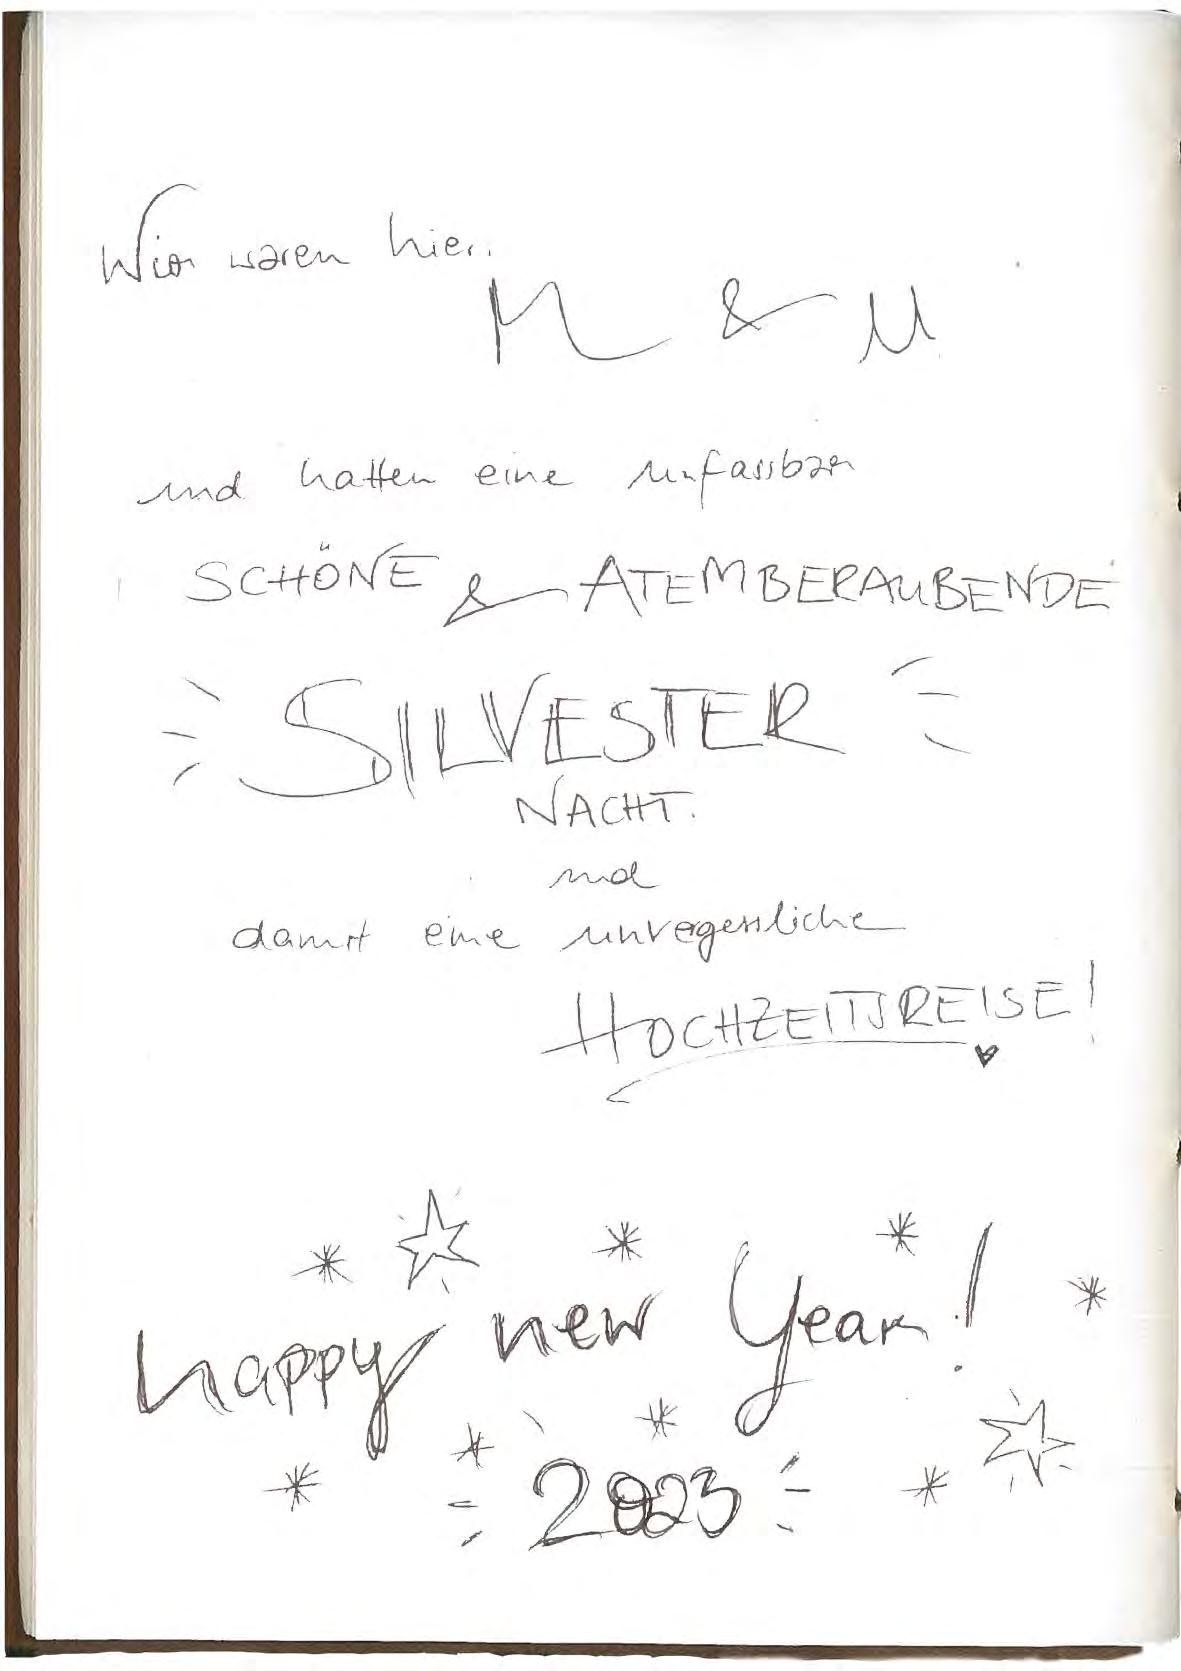 Wir waren hier.
M & M
und hatten eine unfassbar
SCHÖNE & ATEMBERAUBENDE
SILVESTER
NACHT.
und
damit eine unvergessliche
HOCHZEITSREISE!
happy new Year!
2023